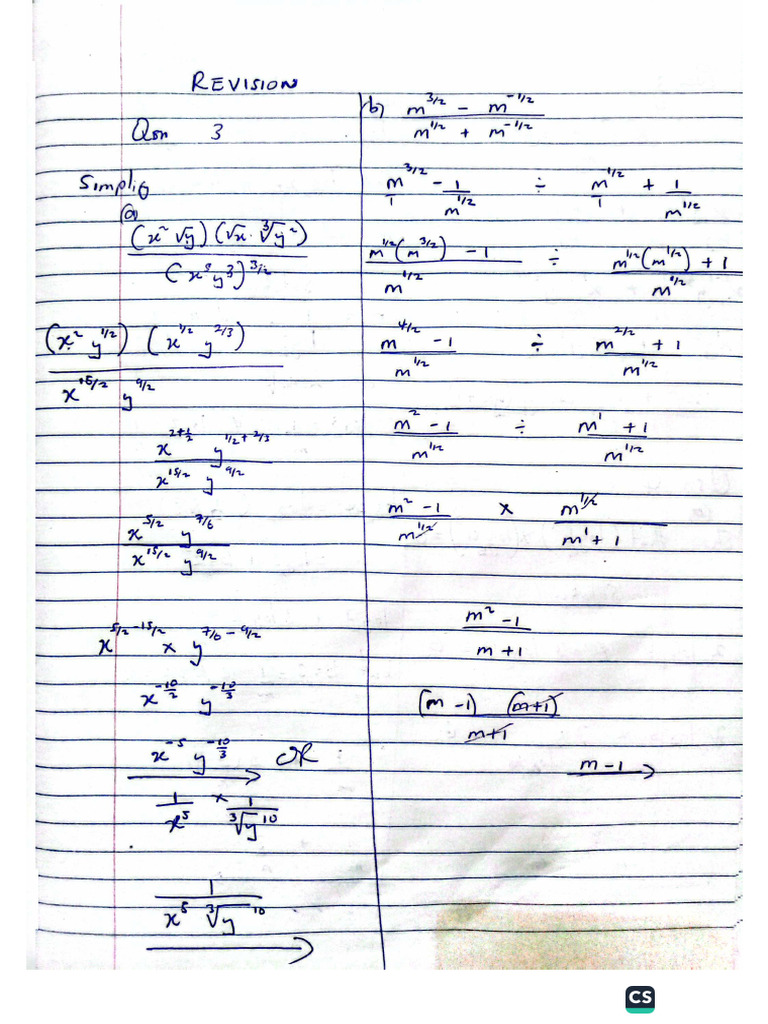 REVISION
Qsn 3
Simplify
(a)
(x² √y) (√x · ∛y²)
(x⁵ y³)^3/2
(x² y^1/2) (x^1/2 y^2/3)
x^15/2 y^9/2
x^2+1/2 y^1/2+2/3
x^15/2 y^9/2
x^5/2 y^7/6
x^15/2 y^9/2
x^5/2-15/2 × y^7/6-9/2
x^-10/2 y^-10/3
x^-5 y^-10/3 OR
1/x⁵ × 1/∛y^10
1
x⁵ ∛y^10
b) m^3/2 - m^-1/2
m^1/2 + m^-1/2
m^3/2/1 - 1/m^1/2 ÷ m^1/2/1 + 1/m^1/2
m^1/2(m^3/2) - 1 ÷ m^1/2(m^1/2) + 1
m^1/2 m^1/2
m^4/2 - 1 ÷ m^2/2 + 1
m^1/2 m^1/2
m² - 1 ÷ m¹ + 1
m^1/2 m^1/2
m² - 1 × m^1/2
m^1/2 m¹ + 1
m² - 1
m + 1
(m - 1) (m+1)
m+1
m - 1
CS